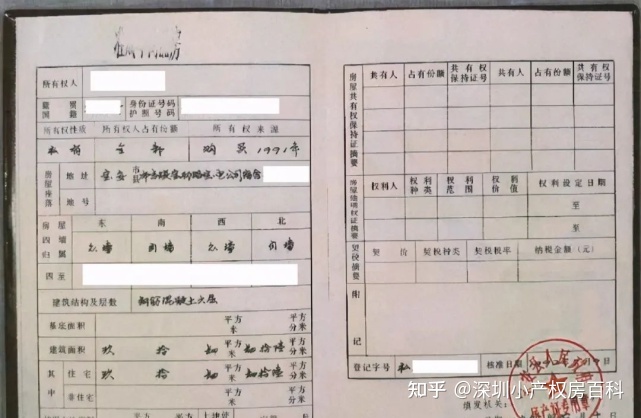 准成本商品房
所有权人
籍贯
国籍
身份证号码
护照号码
所有权性质 所有权人占有份额 所有权来源
私有 全部 购买1991年
房屋座落
地址 宝安 市县
地号
房屋四墙归属
东 南 西 北
自墙 自墙
四至
建筑结构及层数 钢筋混凝土六层
基底面积 平方米 平方分米
建筑面积 玖 拾 平方米 平方分米
其中 住宅 玖 拾 平方米 平方分米
非住宅 平方米 平方分米
房屋共有权保持证摘要
共有人 占有份额 共有权保持证号 共有人 占有份额 共有权保持证号
权利人 权利种类 权利范围 权利价值 权利设定日期
至
至
契税摘要
契价 契税种类 契税税率 纳税金额(元)
附记
登记字号 私 核准日期
填发机关
知乎 @深圳小产权房百科